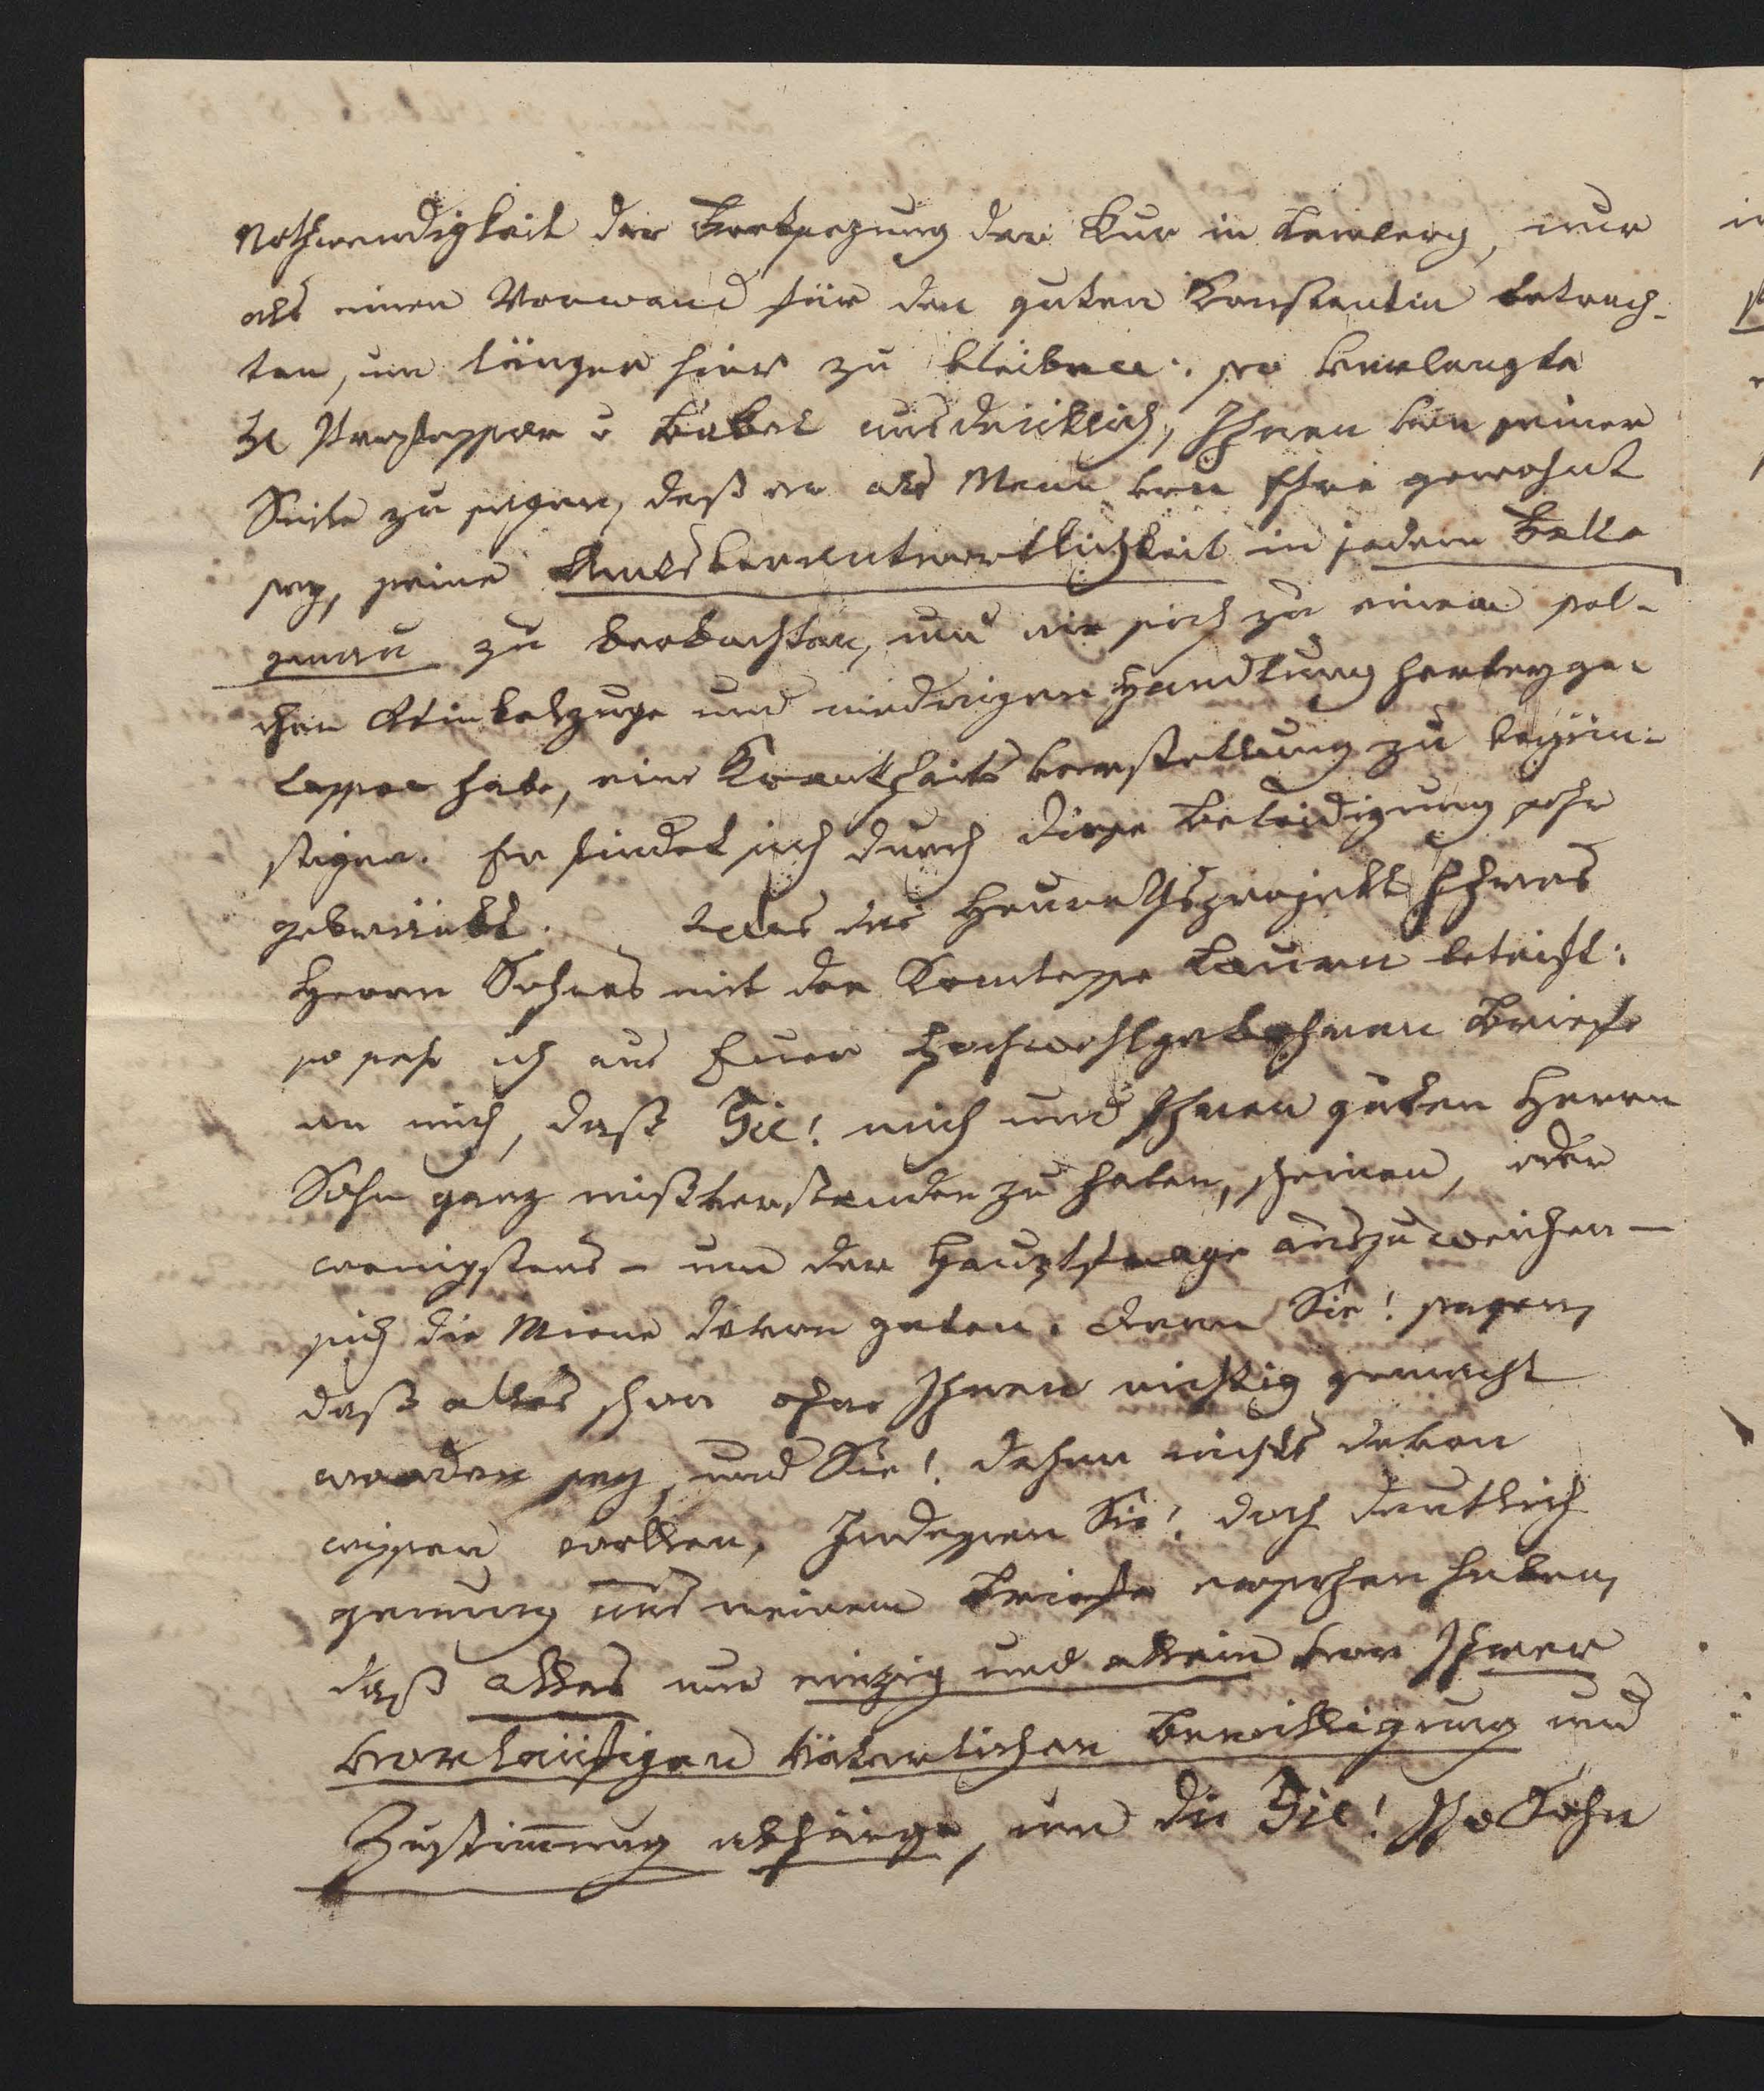 Nothwendigkeit der Fortsezung der Kur in Lemberg, nur
als einen Vorwand für den guten Konstantin betrach-
ten, um länger hier zu bleiben: so verlangte
H Professor v Babel ausdrücklich, Ihnen von seiner
Seite zu sagen, daß er als Mann von Ehre gewohnt
sey, seine Amtsverantwortlichkeit in jedem Falle
genau zu beobachten, und nie sich zu einem sol-
chen Winkelzuge und niedrigen Handlung herbeyge-
lassen habe, eine Krankheits Verstellung zu begün-
stigen. Er findet sich durch diese Beleidigung sehr
gekränkt. Was das Heuraths projekt Ihres
Herrn Sohnes mit der Komtesse Lauren betrift:
so sehe ich aus Euer Hochwohlgebohrnen Briefe
an mich, daß Sie! mich und Ihren guten Herrn
Sohn ganz mißverstanden zu haben, scheinen, oder
wenigstens – um der Hauptfrage auszuweichen –
sich die Miene davon geben. Denn Sie! sagen,
daß alles schon ohne Ihnen richtig gemacht
worden sey, und Sie! daher nichts davon
wissen wollen, Indessen Sie! doch deutlich
genung aus meinem Briefe ersehen haben,
daß alles nur einzig und allein von Ihrer
vorläufigen väterlichen Bewilligung und
Zustim̅ung abhänge, um die Sie! Ihr Sohn